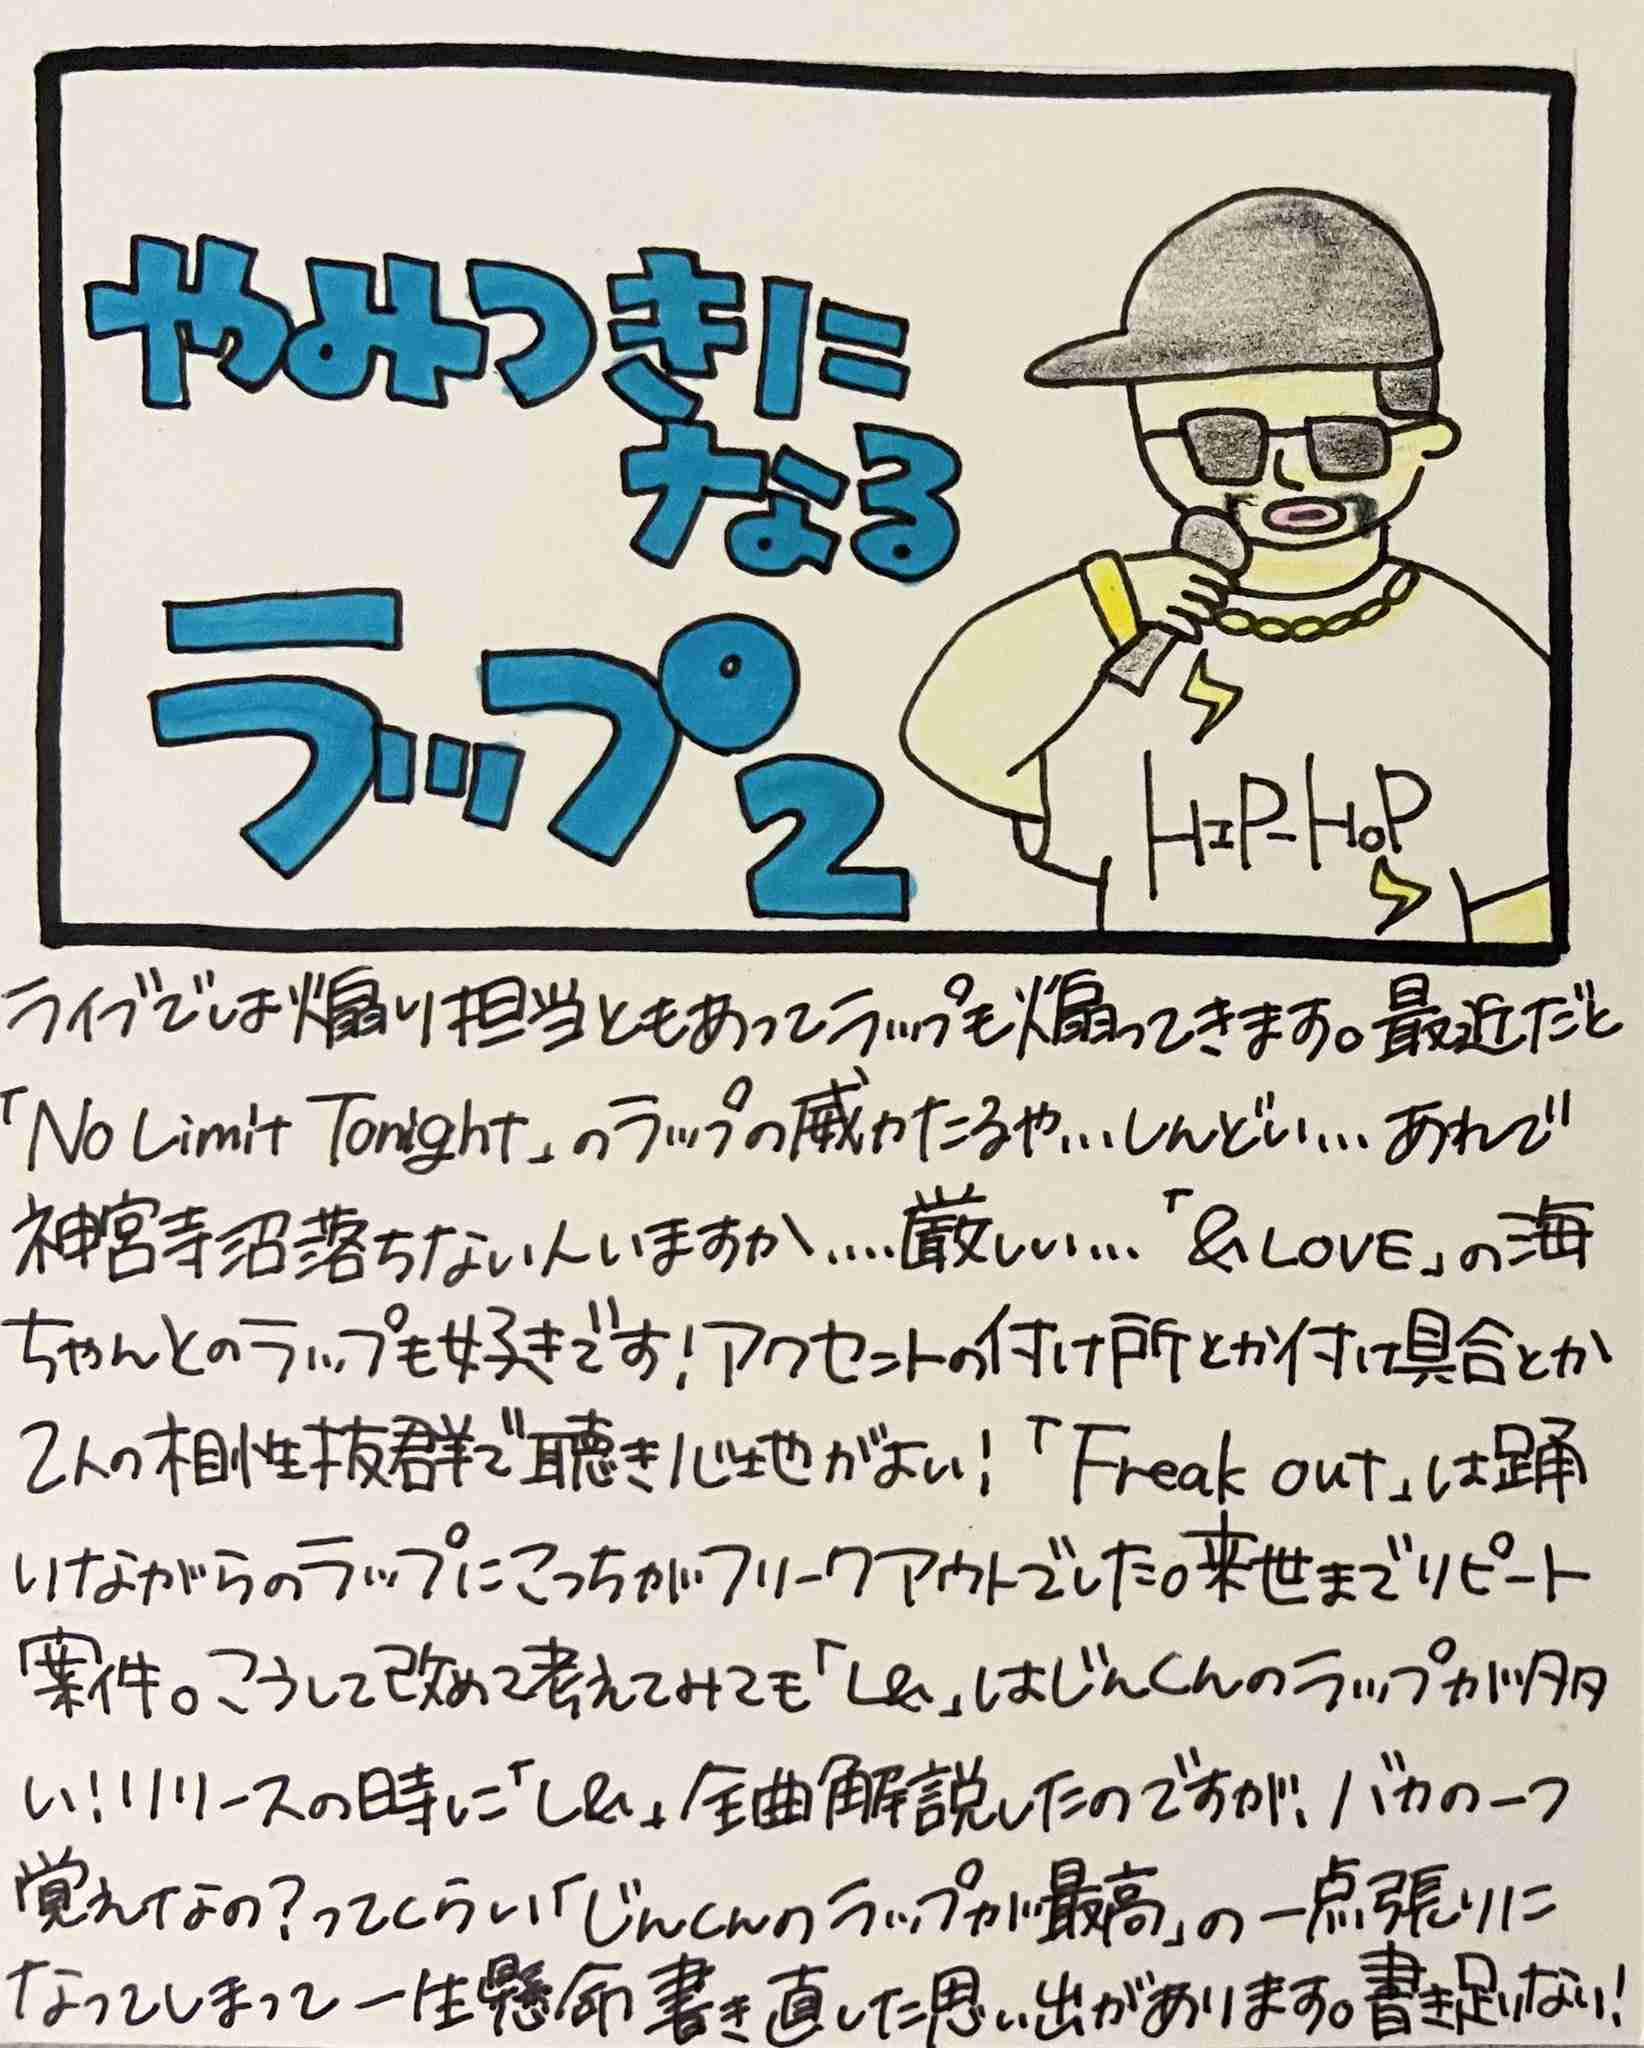 やみつきに
なる
ラップ2
HIP-HOP
ライブでは煽り担当ともあってラップも煽ってきます。最近だと
「No Limit Tonight」のラップの威力たるや...しんどい...あれで
神宮寺沼落ちない人いますか....厳しい...「&LOVE」の海
ちゃんとのラップも好きです!アクセントの付け所とか付け具合とか
2人の相性抜群で聴き心地がよい!「Freak out」は踊
りながらのラップにこっちがフリークアウトでした。来世までリピート
案件。こうして改めて考えてみても「L&」はじんくんのラップが多
い!リリースの時に「L&」全曲解説したのですが、バカの一つ
覚えなの?ってくらい「じんくんのラップが最高」の一点張りに
なってしまって一生懸命書き直した思い出があります。書き足りない!